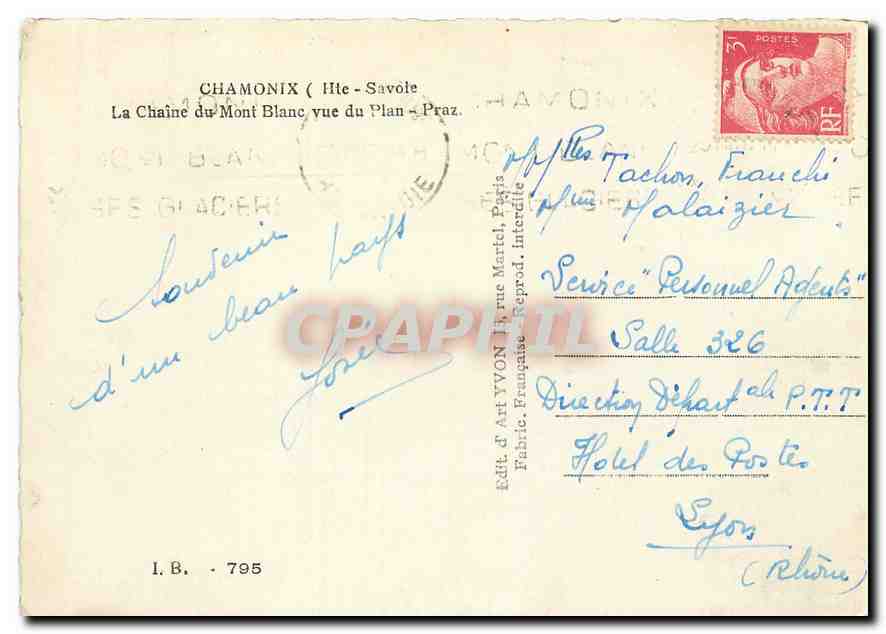 CHAMONIX ( Hte - Savoie
La Chaîne du Mont Blanc vue du Plan - Praz.
CHAMONIX
Souvenir
d'un beau pays
I. B. - 795
Edit. d'Art YVON 15, rue Martel, Paris
Fabric. Française - Reprod. Interdite
POSTES
3F
RF
M/Mlles Tachon, Franchi
Mme Malaizier
Service "Personnel Agents"
Salle 326
Direction Départale P.T.T
Hotel des Postes
Lyon
(Rhône)
CPAPHIL
GLACIERS